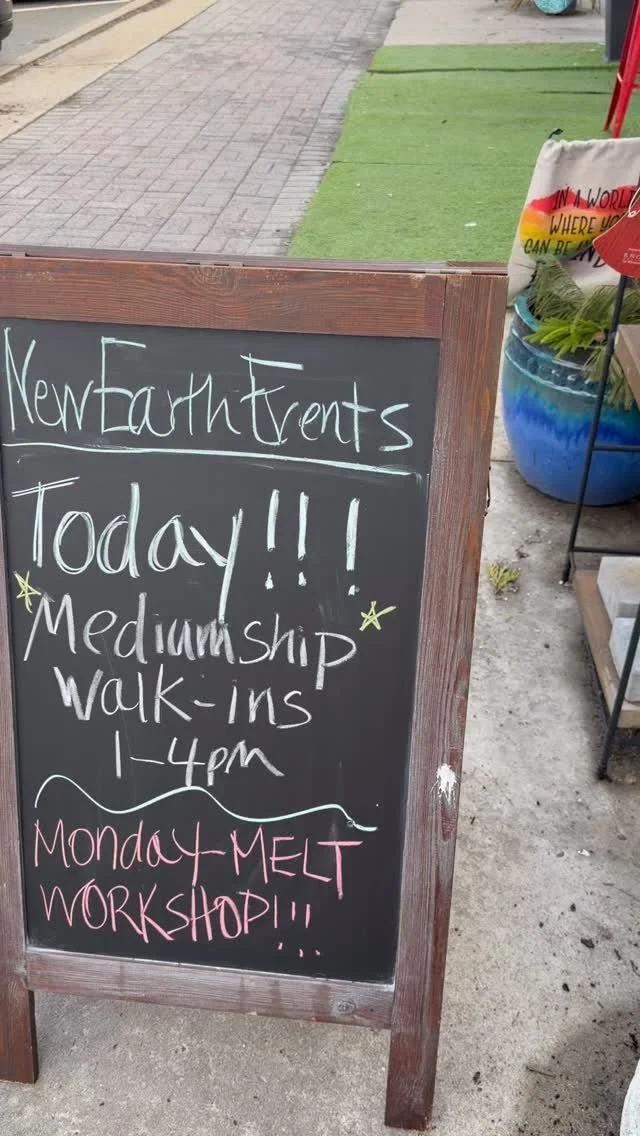 New Earth Events
Today!!!
Mediumship
Walk-ins
1-4pm
Monday-MELT
WORKSHOP!!!
IN A WORLD
WHERE YOU
CAN BE